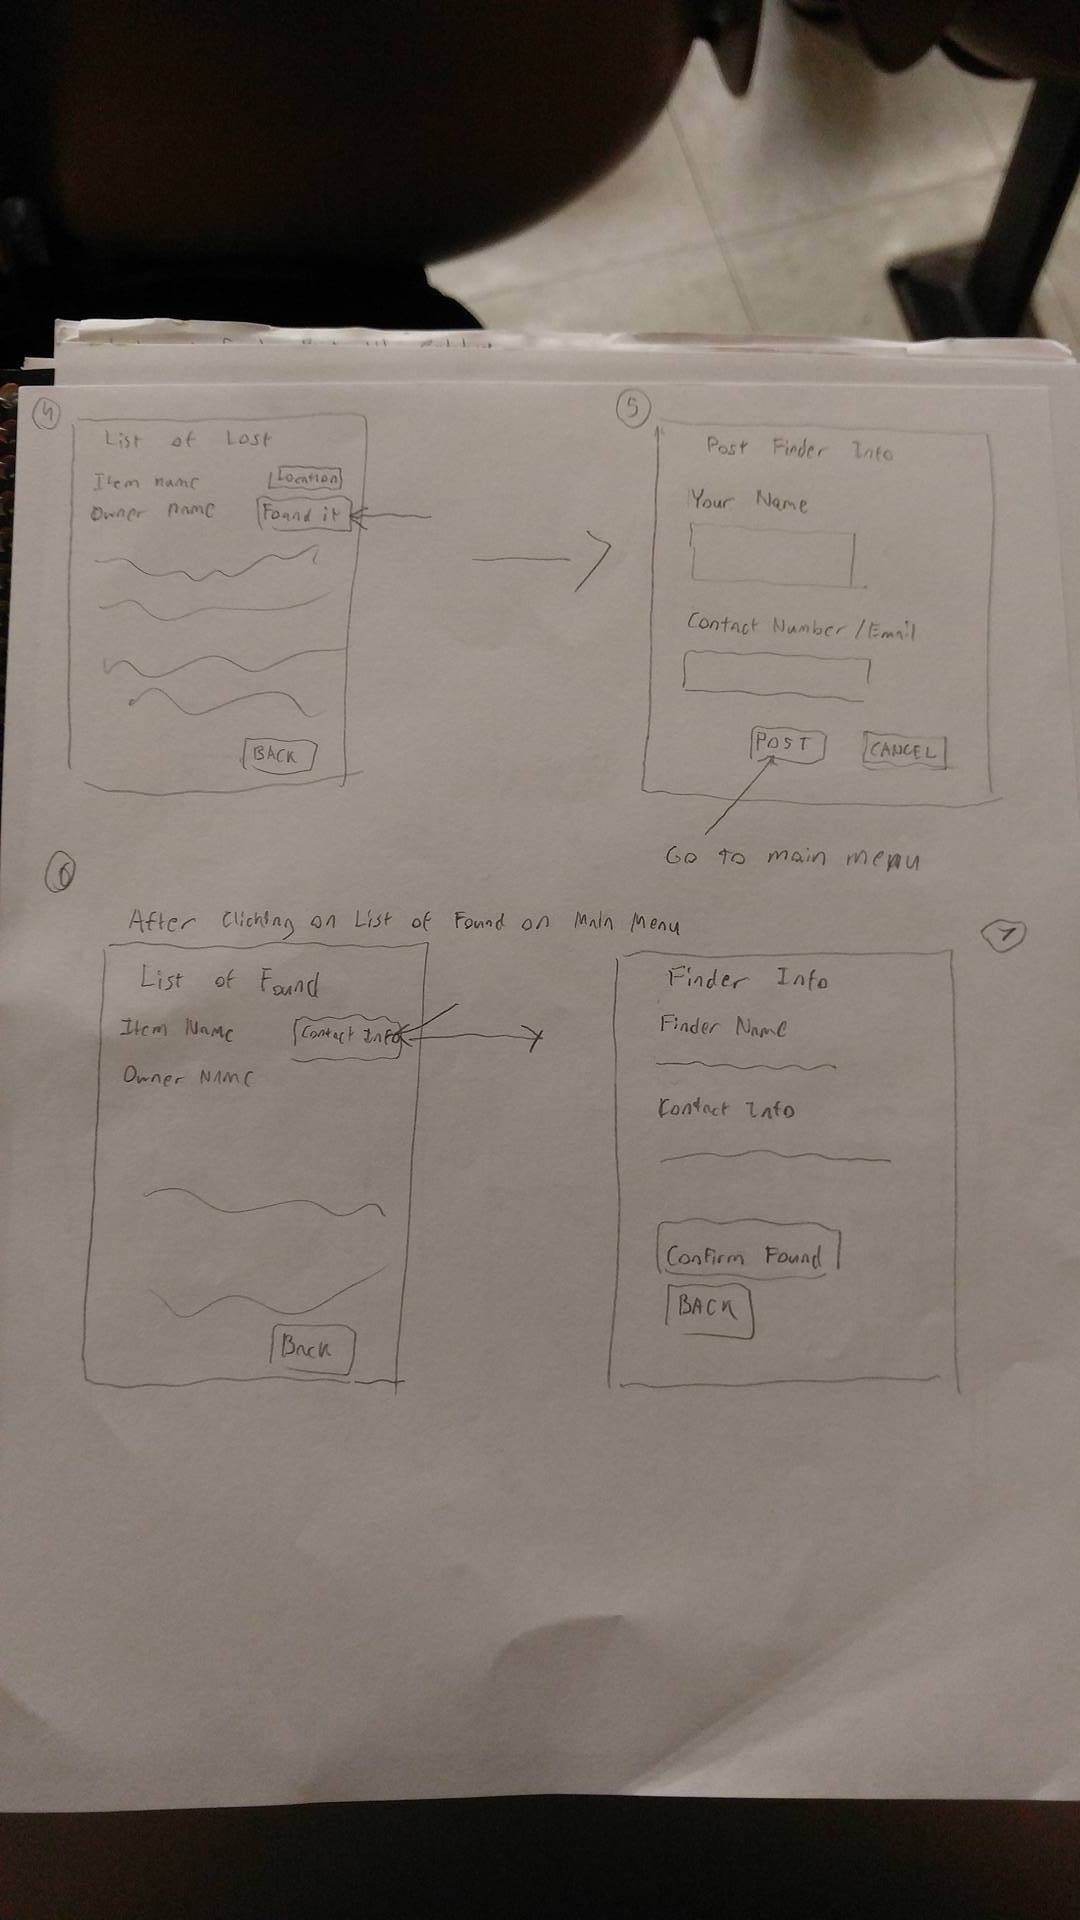 4
List of Lost
Item name Location
Owner name Found it
BACK
5
Post Finder Info
Your Name
Contact Number / Email
POST CANCEL
Go to main menu
6
After Clicking on List of Found on Main Menu
List of Found
Item Name Contact Info
Owner Name
Back
7
Finder Info
Finder Name
Contact Info
Confirm Found
BACK